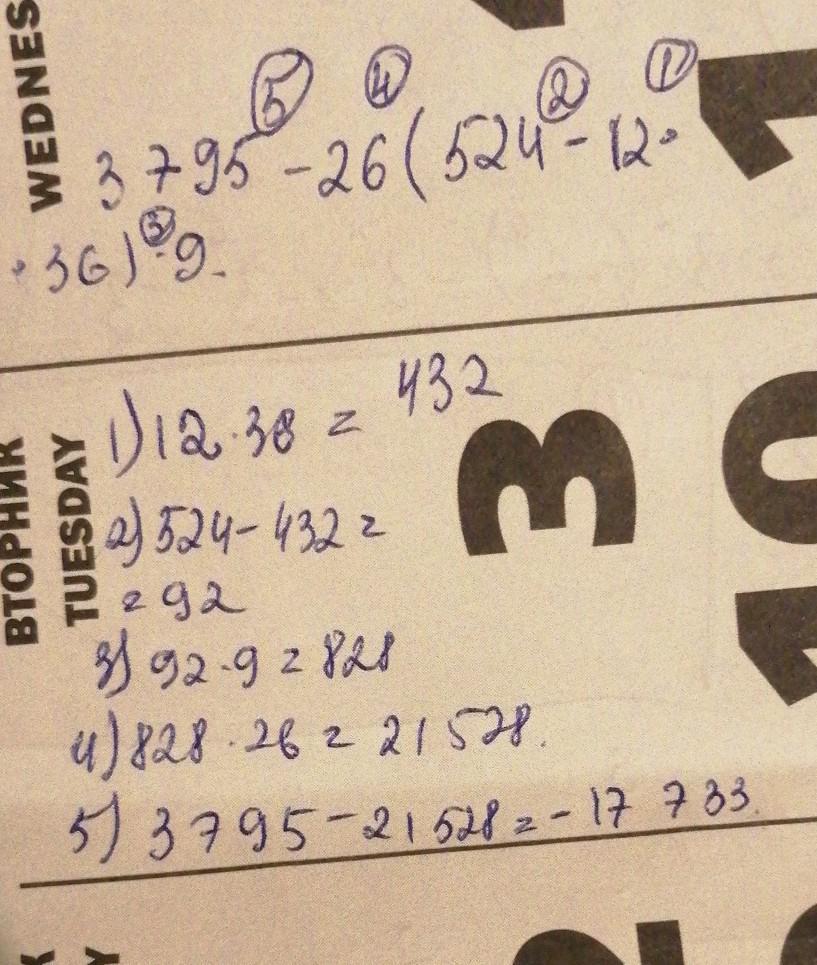 WEDNES
5 4 2 1
3795 - 26 ( 524 - 12 ·
· 36 ) · 9.
3
ВТОРНИК
TUESDAY
3
10
1) 12 · 36 = 432
2) 524 - 432 =
= 92
3) 92 · 9 = 828
4) 828 · 26 = 21 528.
5) 3795 - 21528 = - 17 733.